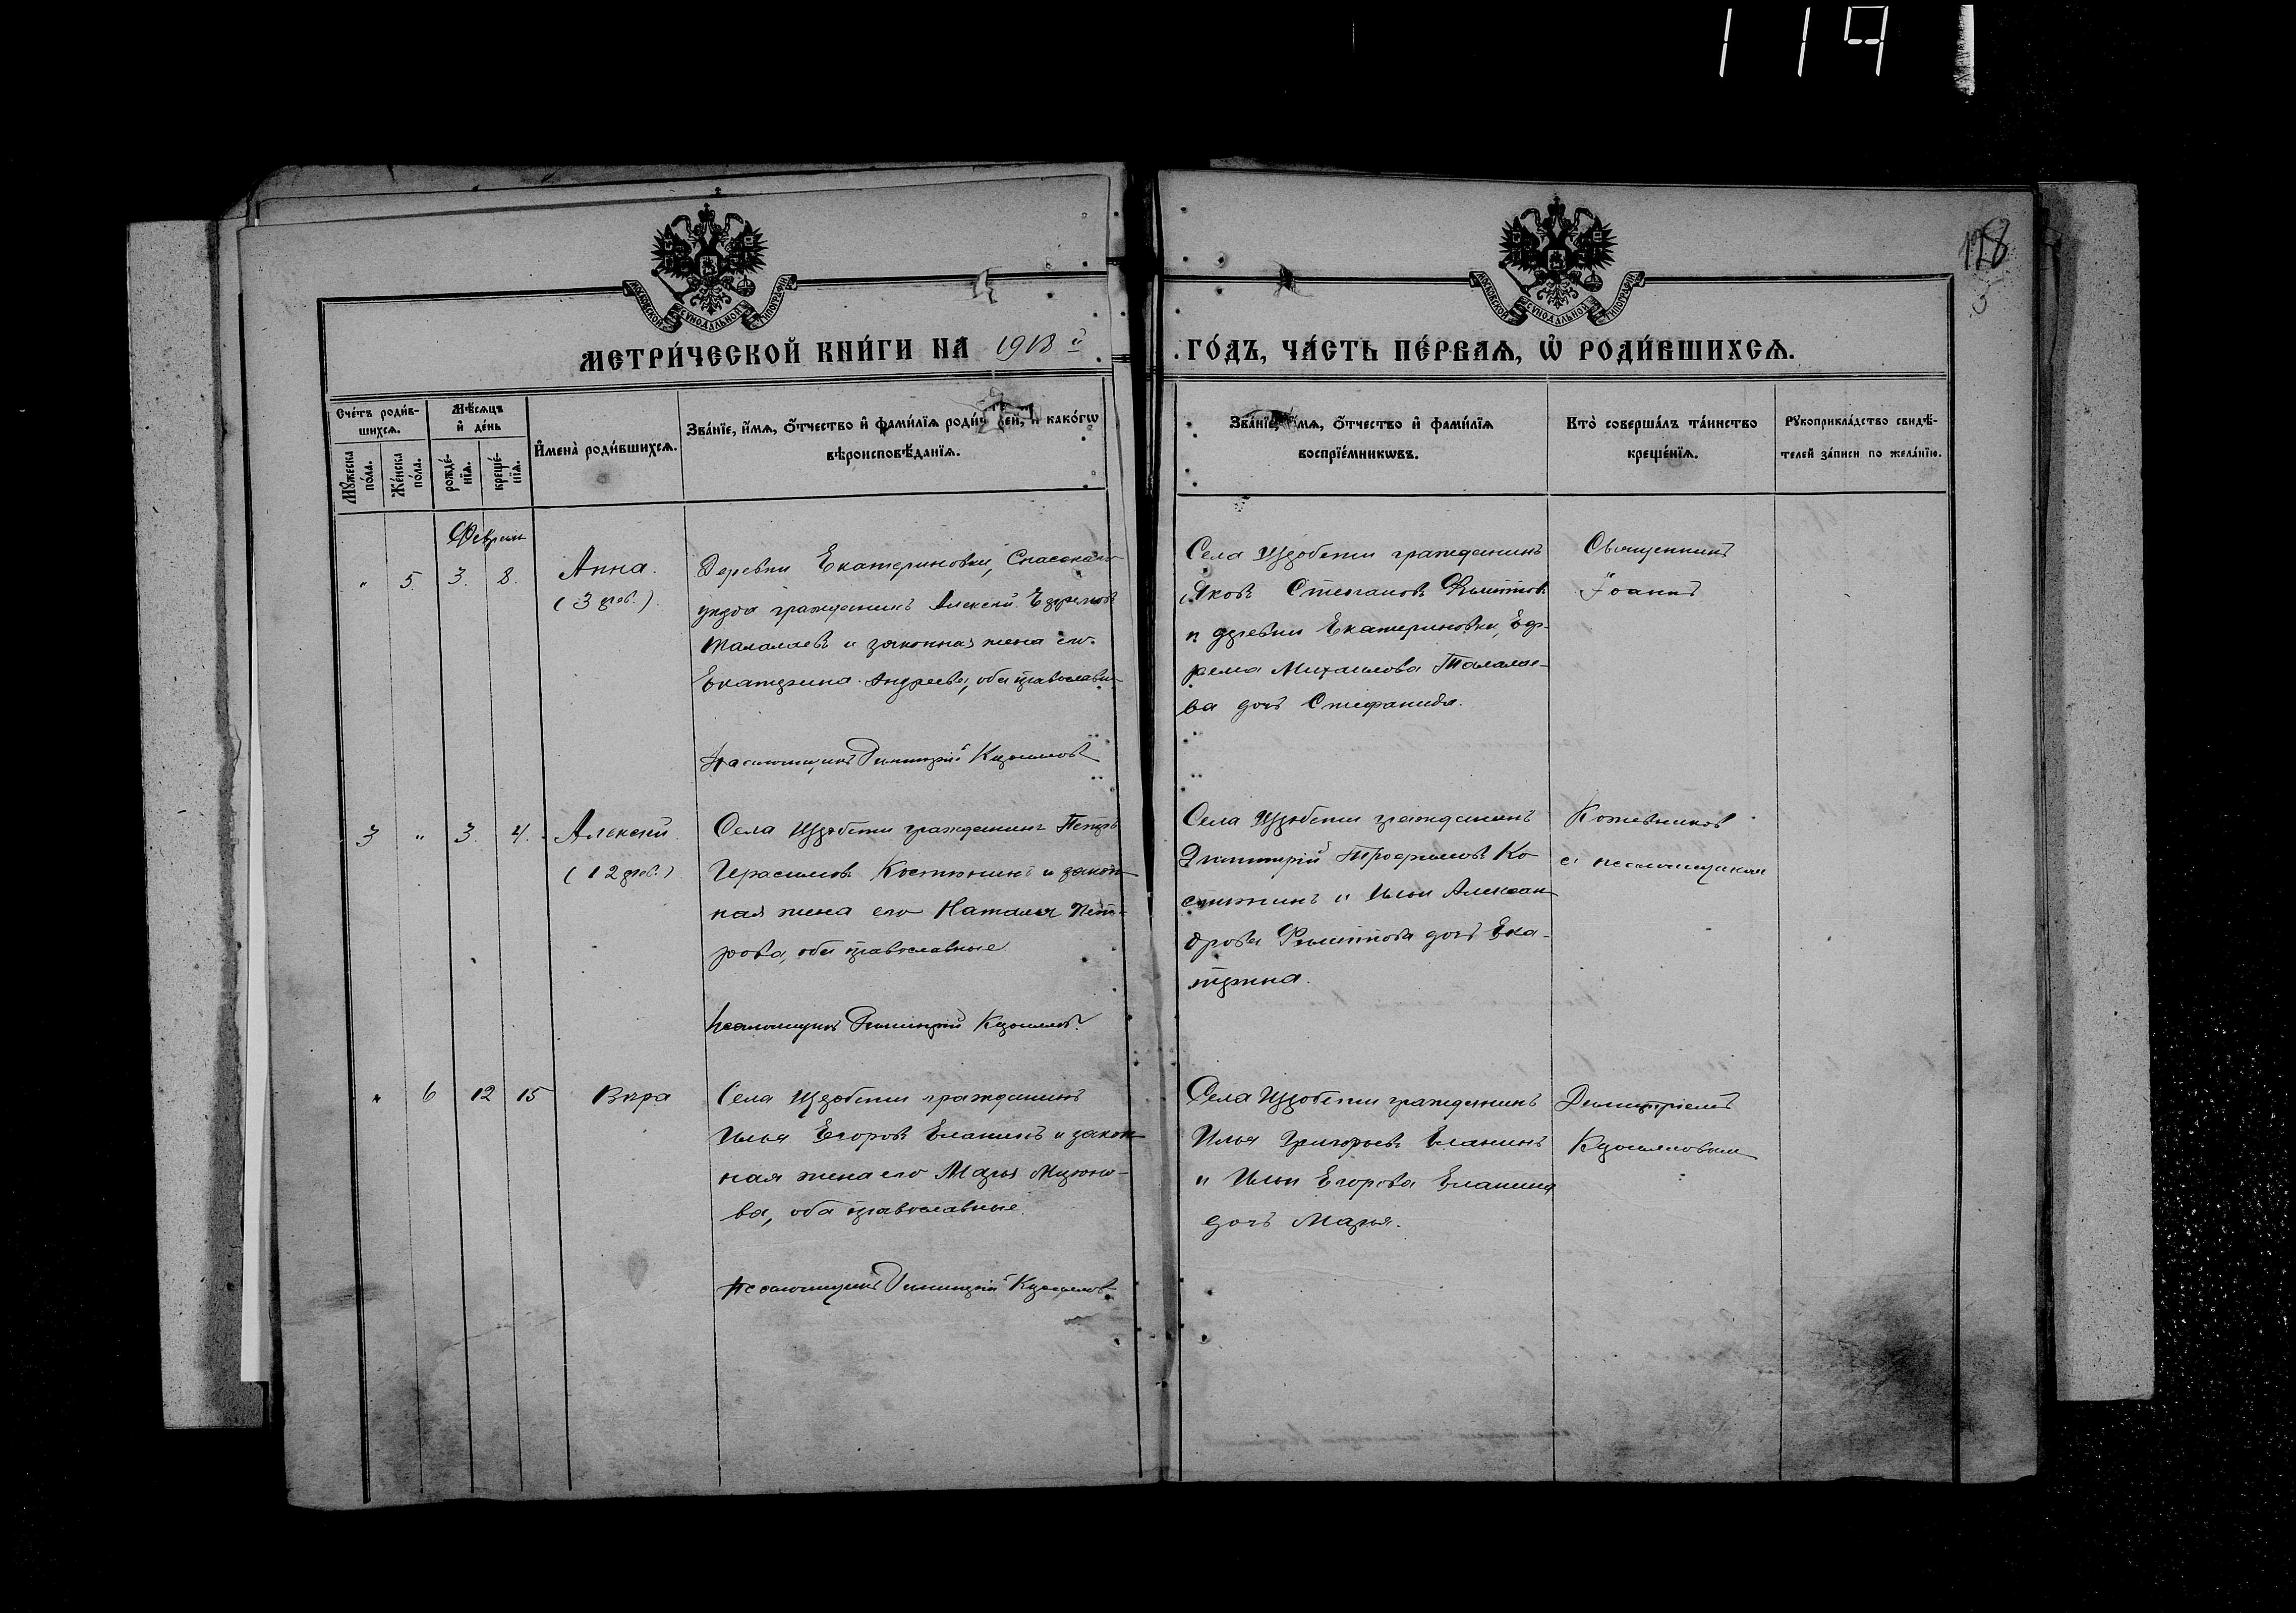 119
128
5
МОСКОВСКОЙ СѴНОДАЛЬНОЙ ТИПОГРАФІИ
МОСКОВСКОЙ СѴНОДАЛЬНОЙ ТИПОГРАФІИ
МЕТРИ́ЧЕСКОЙ КНИ́ГИ НА 1918 й
ГО́ДЪ, ЧА́СТЬ ПЕ́РВАѦ, Ѽ РОДИ́ВШИХСѦ.
Сче́тъ роди́в-
шихсѧ.
Мꙋ́жеска по́ла.
Же́нска по́ла.
Мѣ́сѧцъ
и҆ де́нь
рожде́-
нїѧ.
креще́-
нїѧ.
И҆мена̀ роди́вшихсѧ.
Зва́нїе, и҆́мѧ, ѻ҆́тчество и҆ фами́лїѧ роди́телей, и҆ како́гѡ
вѣроисповѣ́данїѧ.
Зва́нїе, и҆́мѧ, ѻ҆́тчество и҆ фами́лїѧ
воспрїе́мникѡвъ.
Кто̀ соверша́лъ та́инство
креще́нїѧ.
Рꙋкоприкла́дство свидѣ́-
телей за́писи по жела́нїю.
Февраля
" 5. 3. 8. Анна.
(3 фев.)
Деревни Екатериновки, Спасскаго
уѣзда гражданинъ Алексѣй Ефремовъ
Талалаевъ и законная жена его
Екатерина Андреева, оба православны
Псаломщикъ Димитрій
Села гражданинъ
Яковъ Степановъ Филиппов
и деревни Екатериновки, Еф-
рема Михаилова Талалае-
ва дочь Стефанида.
Священникъ
Іоаннъ
3 " 3. 4. Алексѣй
(12 фев.)
Села гражданинъ Петръ
Герасимовъ Костюнинъ и закон-
ная жена его Наталья Пет-
рова, оба православные.
Псаломщикъ Димитрій
Села гражданинъ
Димитрій Трофимовъ Ко-
стюнинъ и Ильи Алексан-
дрова Филиппова дочь Ека-
терина.
Кожевников
с псаломщикомъ
" 6 12 15 Вѣра
Села гражданинъ
Илья Егоровъ Еланинъ и закон
ная жена его Марья
ва, оба православные.
Псаломщикъ Димитрій
Села гражданинъ
Илья Григорьевъ Еланинъ
и Ильи Егорова Еланина
дочь Марья.
Димитріемъ